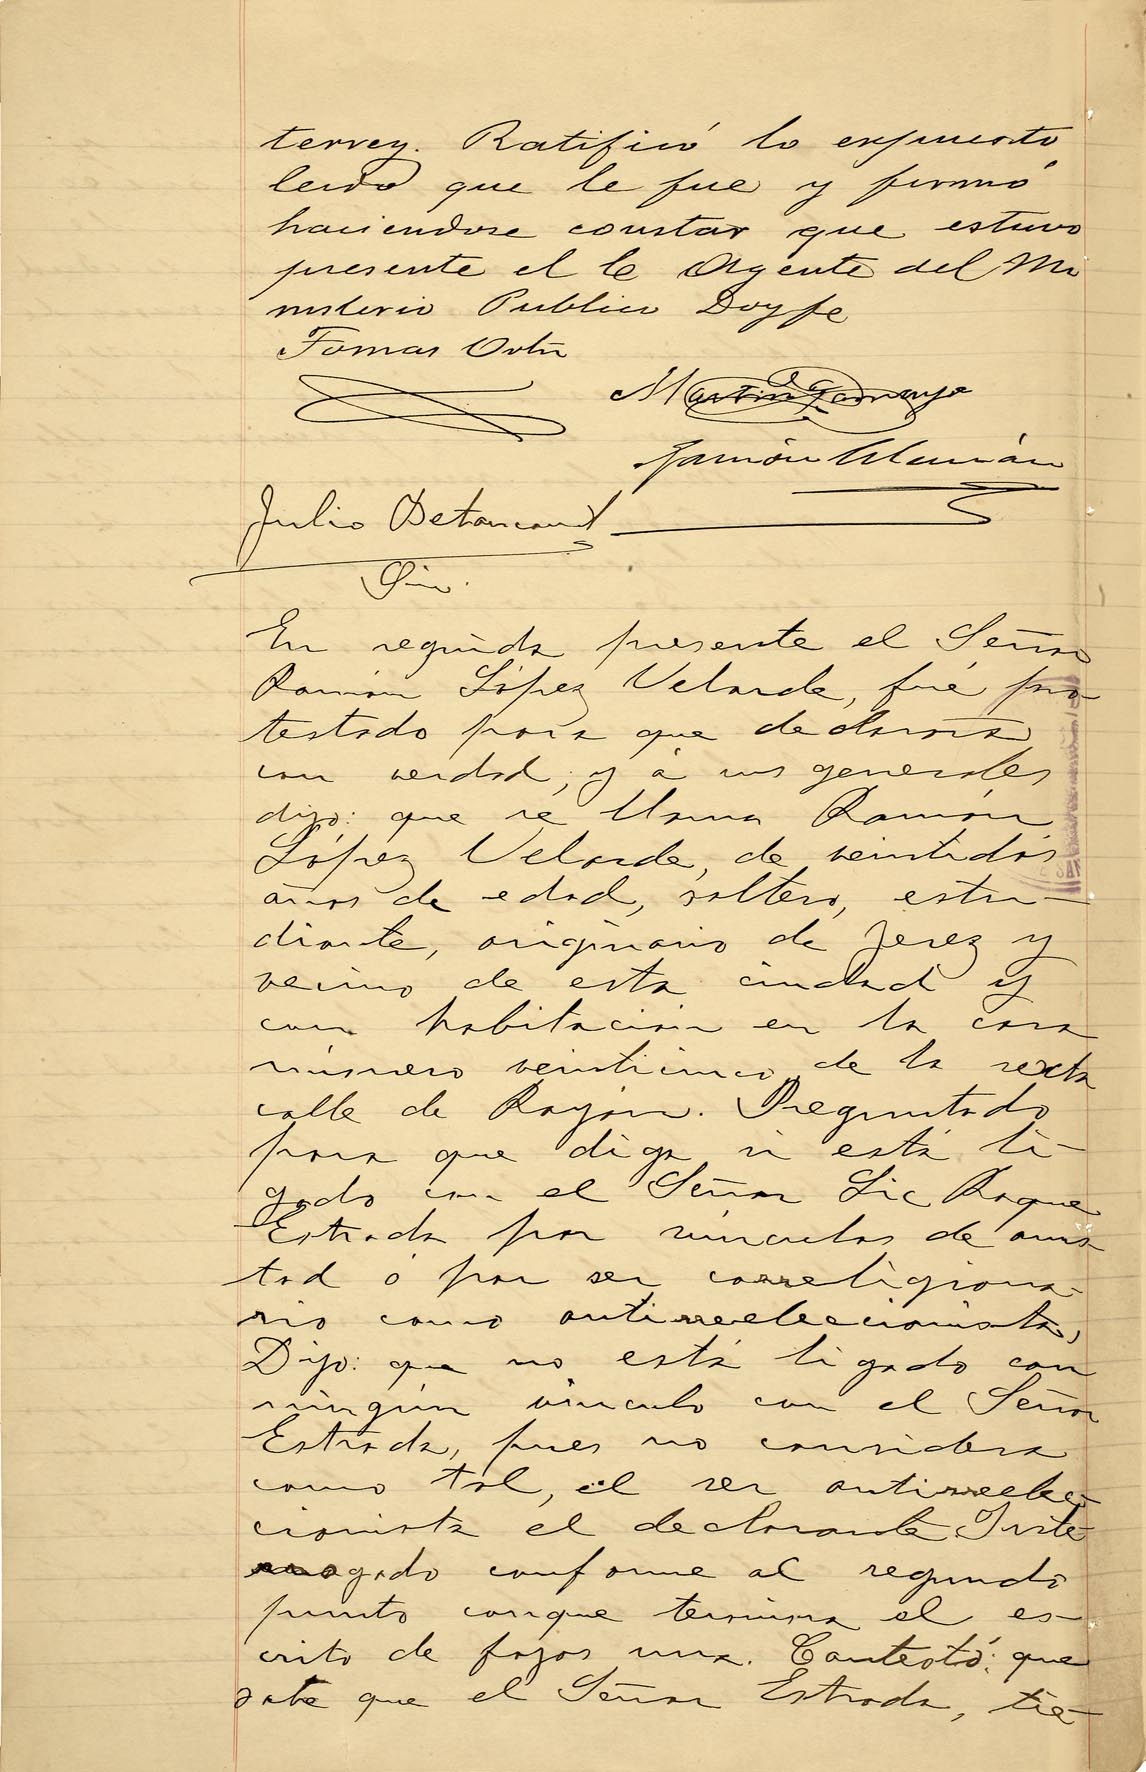 terrey. Ratificó lo expuesto
leido que le fue y firmó
haciendose constar que estuvo
presente el C Agente del Mi
nisterio Publico Doy fe
Tomas Ortiz
Ramón Alemán
Julio Betancourt
Srio.
En seguida presente el Señor
Ramón López Velarde, fué pro-
testado para que declarara
con verdad, y á sus generales
dijo: que se llama Ramón
López Velarde, de veintidós
años de edad, soltero, estu-
diante, originario de Jerez y
vecino de esta ciudad y
con habitación en la casa
número veinticinco de la sexta
calle de Rayón. Preguntado
para que diga si está li-
gado con el Señor Lic Roque
Estrada por vínculos de amis
tad ó por ser correligiona-
rio como antirreeleccionista,
Dijo: que no está ligado con
ningún vínculo con el Señor
Estrada, pues no considera
como tal, el ser antirreelec-
cionista el declarante. Inte-
rrogado conforme al segundo
punto conque termina el es-
crito de fojas una. Contestó: que
sabe que el Señor Estrada, tie-